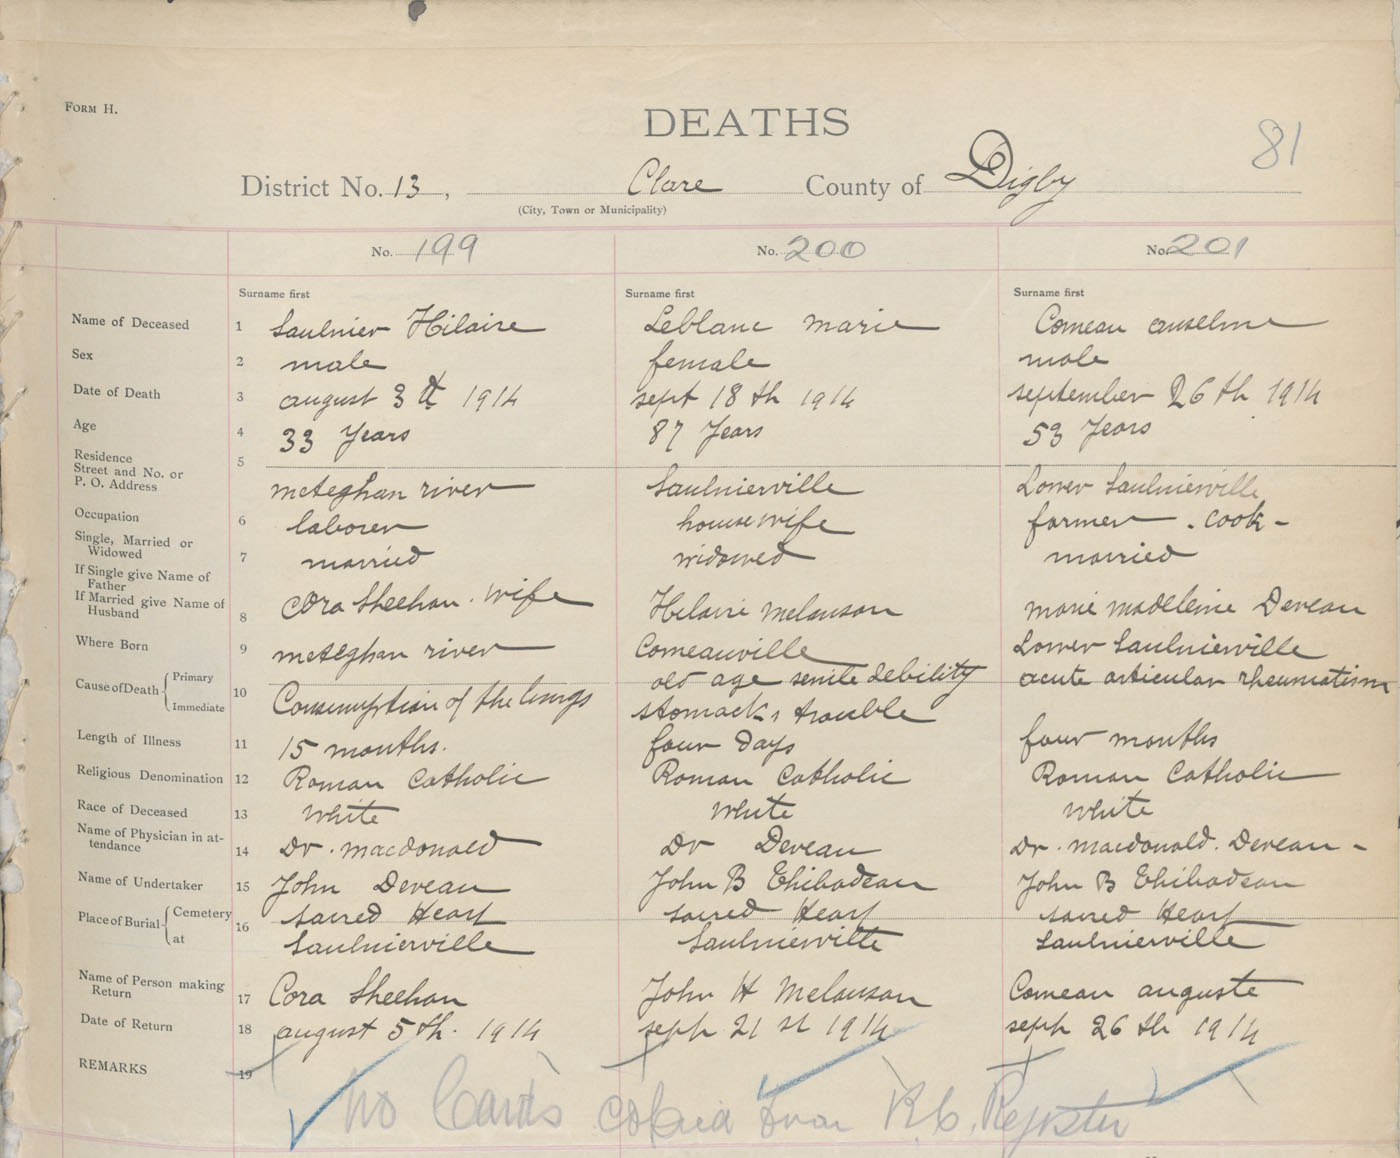 FORM H.
DEATHS
81
District No. 13, Clare County of Digby
(City, Town or Municipality)
No. 199 No. 200 No. 201
Surname first Surname first Surname first
Name of Deceased 1 Saulnier Hilaire Leblanc marie Comeau anselme
Sex 2 male female male
Date of Death 3 august 3d 1914 sept 18 th 1914 september 26 th 1914
Age 4 33 Years 87 Years 53 Years
Residence Street and No. or P. O. Address 5 meteghan river Saulnierville Lower Saulnierville
Occupation 6 laborer housewife farmer - cook -
Single, Married or Widowed 7 married widowed married
If Single give Name of Father
If Married give Name of Husband 8 Cora Sheehan. wife Hilaire melanson marie madeleine Deveau
Where Born 9 meteghan river Comeauville Lower Saulnierville
Cause of Death { Primary Immediate 10 Consumption of the lungs old age senile debility acute articular rheumatism
stomack, trouble
Length of Illness 11 15 months. four days four months
Religious Denomination 12 Roman Catholic Roman Catholic Roman Catholic
Race of Deceased 13 white white white
Name of Physician in attendance 14 Dr. macdonald Dr Deveau Dr. macdonald. Deveau -
Name of Undertaker 15 John Deveau John B Thibodeau John B Thibodeau
Place of Burial { Cemetery at 16 sacred Heart sacred Heart sacred Heart
Saulnierville Saulnierville Saulnierville
Name of Person making Return 17 Cora Sheehan John H Melanson Comeau auguste
Date of Return 18 august 5 th. 1914 sept 21 st 1914 sept 26 th 1914
REMARKS 19
No Cards copied from R.C. Register